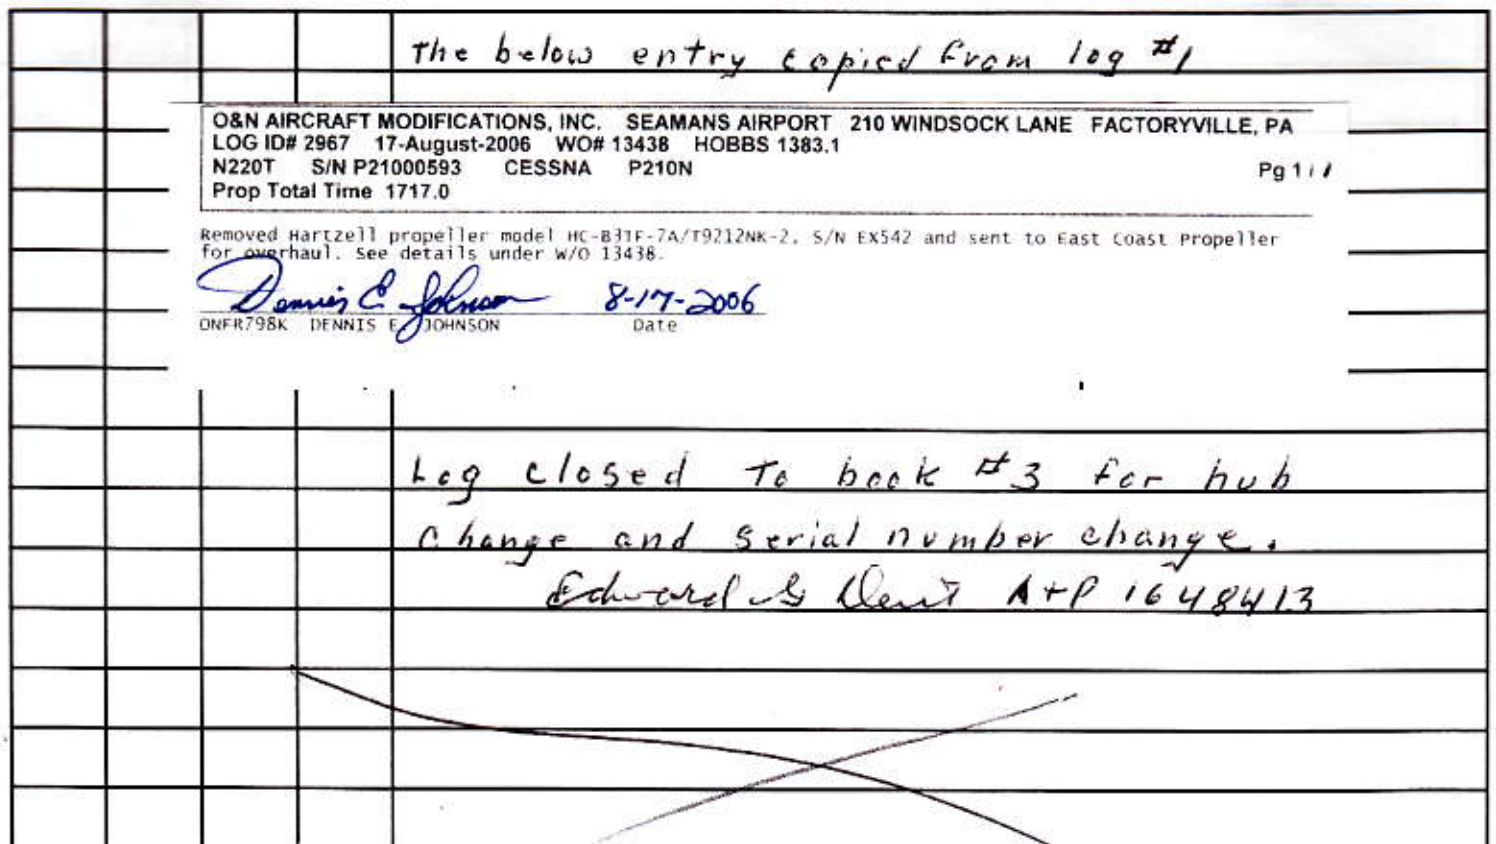 The below entry copied from log #1
O&N AIRCRAFT MODIFICATIONS, INC. SEAMANS AIRPORT 210 WINDSOCK LANE FACTORYVILLE, PA
LOG ID# 2967 17-August-2006 WO# 13438 HOBBS 1383.1
N220T S/N P21000593 CESSNA P210N Pg 1 / 1
Prop Total Time 1717.0
Removed Hartzell propeller model HC-B3TF-7A/T9212NK-2, S/N EX542 and sent to East Coast Propeller
for overhaul. See details under W/O 13438.
Dennis E Johnson 8-17-2006
ONFR798K DENNIS E JOHNSON Date
Log closed To book #3 for hub
change and serial number change.
Edward G Dent A+P 1648413